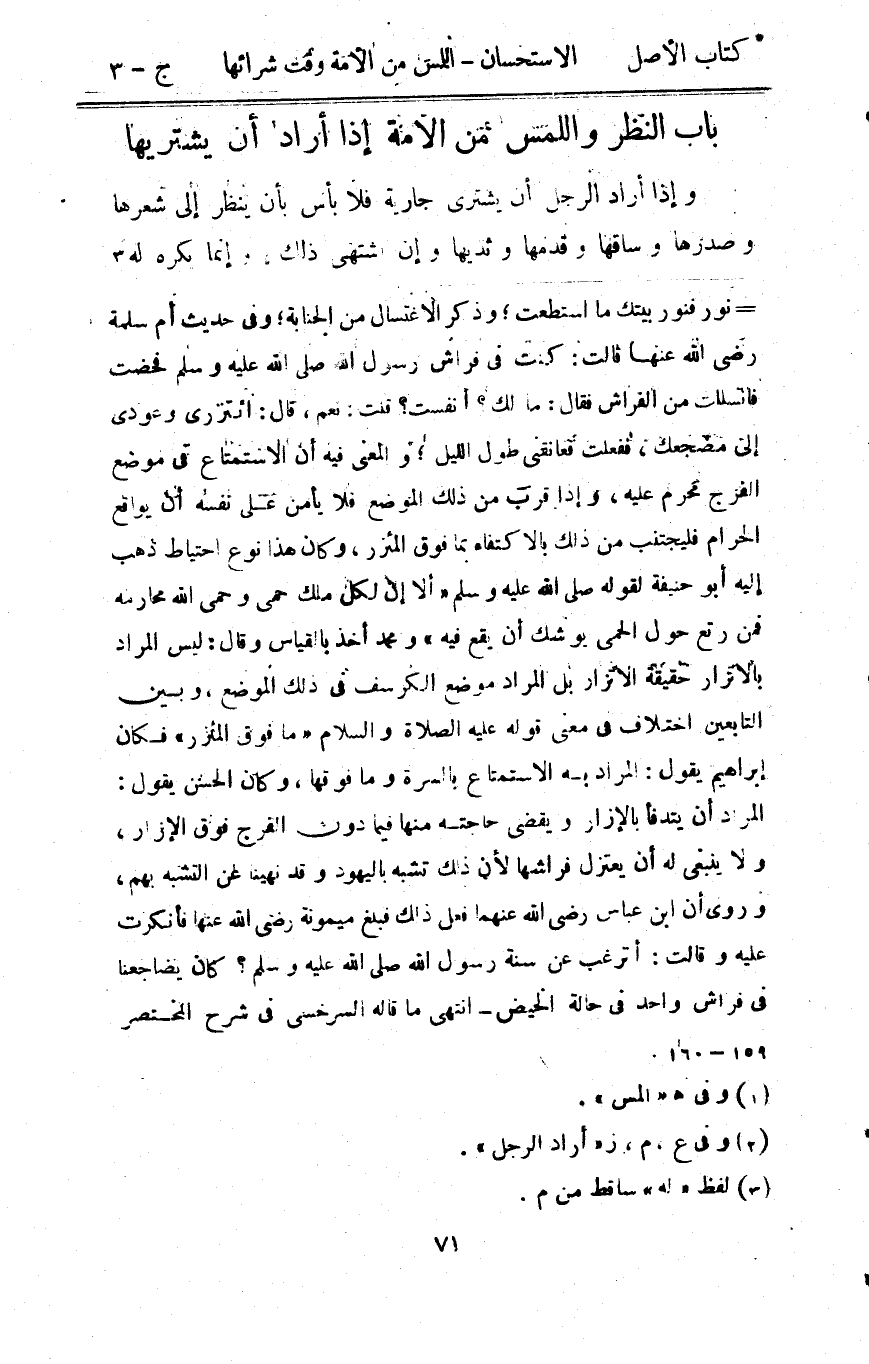 كتاب الأصل الاستحسان – اللمس من الأمة وقت شرائها ج – ٣
باب النظر و اللمس١ من الأمة إذا أراد٢ أن يشتريها
و إذا أراد الرجل أن يشترى جارية فلا بأس بأن ينظر إلى شعرها
و صدرها و ساقها و قدمها و ثديها و إن اشتهى ذلك ، و إنما يكره له٣
= نور فنور بيتك ما استطعت ؛ و ذكر الاغتسال من الجنابة ؛ و فى حديث أم سلمة
رضى الله عنها قالت : كنت فى فراش رسول الله صلى الله عليه و سلم فحضت
فانسللت من الفراش فقال : ما لك ؟ أنفست ؟ قلت : نعم ، قال : ائتزرى و عودى
إلى مضجعك ، ففعلت فعانقنى طول الليل ؛ و المعنى فيه أن الاستمتاع فى موضع
الفرج محرم عليه ، و إذا قرب من ذلك الموضع فلا يأمن على نفسه أن يواقع
الحرام فليجتنب من ذلك بالاكتفاء بما فوق المئزر ، و كان هذا نوع احتياط ذهب
إليه أبو حنيفة لقوله صلى الله عليه و سلم « ألا إن لكل ملك حمى و حمى الله محارمه
فمن رتع حول الحمى يوشك أن يقع فيه » و محمد أخذ بالقياس و قال : ليس المراد
بالاتزار حقيقة الاتزار بل المراد موضع الكرسف فى ذلك الموضع ، و بين
التابعين اختلاف فى معنى قوله عليه الصلاة و السلام « ما فوق المئزر » فكان
إبراهيم يقول : المراد به الاستمتاع بالسرة و ما فوقها ، و كان الحسن يقول :
المراد أن يتدفأ بالإزار و يقضى حاجته منها فيما دون الفرج فوق الإزار ،
و لا ينبغى له أن يعتزل فراشها لأن ذلك تشبه باليهود و قد نهينا عن التشبه بهم ،
و روى أن ابن عباس رضى الله عنهما فعل ذلك فبلغ ميمونة رضى الله عنها فأنكرت
عليه و قالت : أترغب عن سنة رسول الله صلى الله عليه و سلم ؟ كان يضاجعنا
فى فراش واحد فى حالة الحيض – انتهى ما قاله السرخسى فى شرح المختصر
١٥٩ – ١٦٠ .
(١) و فى ه « المس » .
(٢) و فى ع ، م ، ز « أراد الرجل » .
(٣) لفظ « له » ساقط من م .
٧١